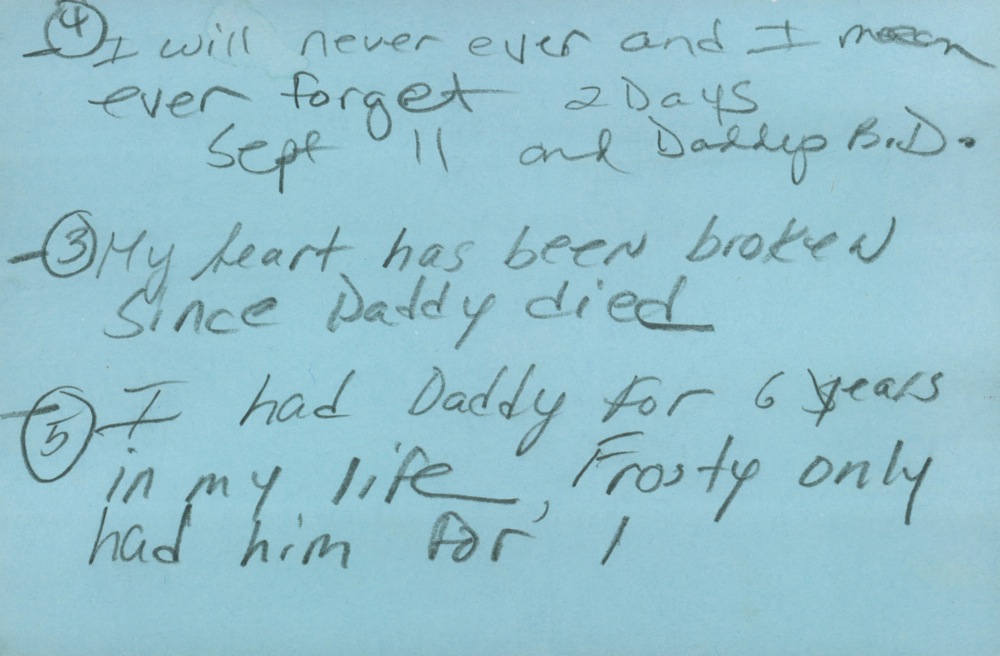 4 I will never ever and I mean
ever forget 2 Days
Sept 11 and Daddys B.D.
3 My heart has been broken
Since Daddy died
5 I had Daddy for 6 years
in my life, Frosty only
had him for 1